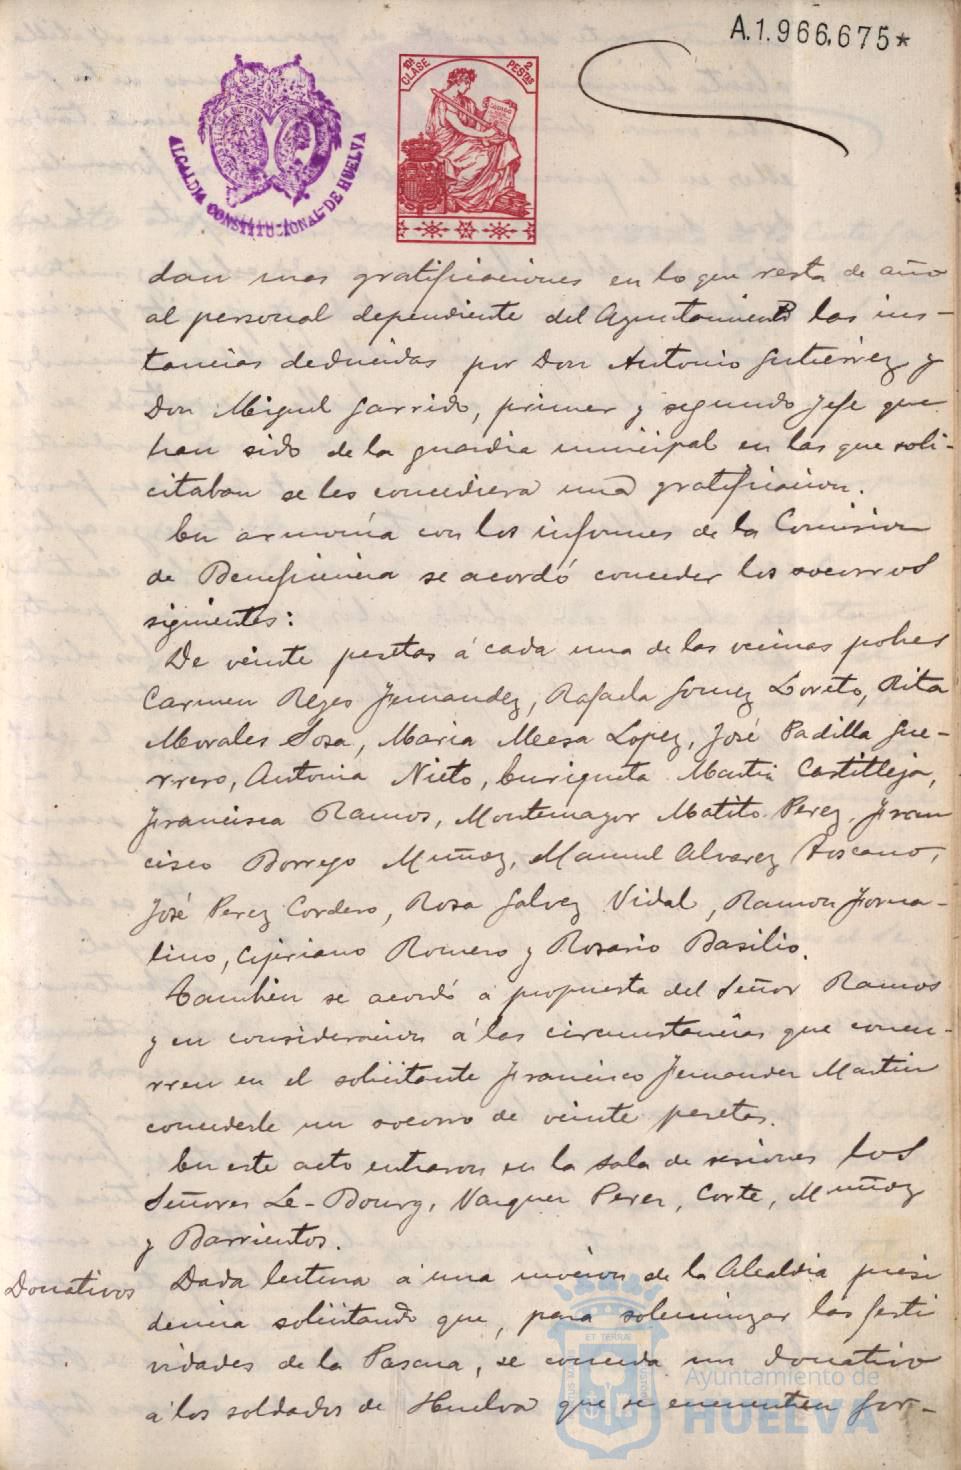 A.1.966.675*
ALCALDIA CONSTITUCIONAL DE HUELVA
CLASE
2 PESETAS
dan mas gratificaciones en lo que resta de año
al personal dependiente del Ayuntamiento las ins-
tancias deducidas por Don Antonio Gutierrez y
Don Miguel Garrido, primer y segundo Jefe que
han sido de la guardia municipal en las que soli-
citaban se les concediera una gratificacion.
En armonía con los informes de la Comision
de Beneficencia se acordó conceder los socorros
siguientes:
De veinte pesetas á cada una de las vecinas pobres
Carmen Reyes Fernandez, Rafaela Gomez Loreto, Rita
Morales Sosa, Maria Meesa Lopez, José Padilla Gue-
rrero, Antonia Nieto, Enriqueta Martin Castilleja,
Francisca Ramos, Montemayor Matito Perez, Fran
cisco Borrego Muñoz, Manuel Alvarez Toscano,
José Perez Cordero, Rosa Galvez Vidal, Ramon Forna-
lino, Cipriano Romero y Rosario Basilio.
Tambien se acordó a propuesta del Señor Ramos
y en consideracion á las circunstancias que concu-
rren en el solicitante Francisco Fernandez Martin
concederle un socorro de veinte pesetas.
En este acto entraron en la sala de sesiones los
Señores Le-Bourg, Vazquez Perez, Corte, Muñoz
y Barrientos.
Donativos Dada lectura á una mocion de la Alcaldia presi
dencia solicitando que, para solemnizar las festi
vidades de la Pascua, se conceda un donativo
á los soldados de Huelva que se encuentren for-
ET TERRÆ
Ayuntamiento de
HUELVA